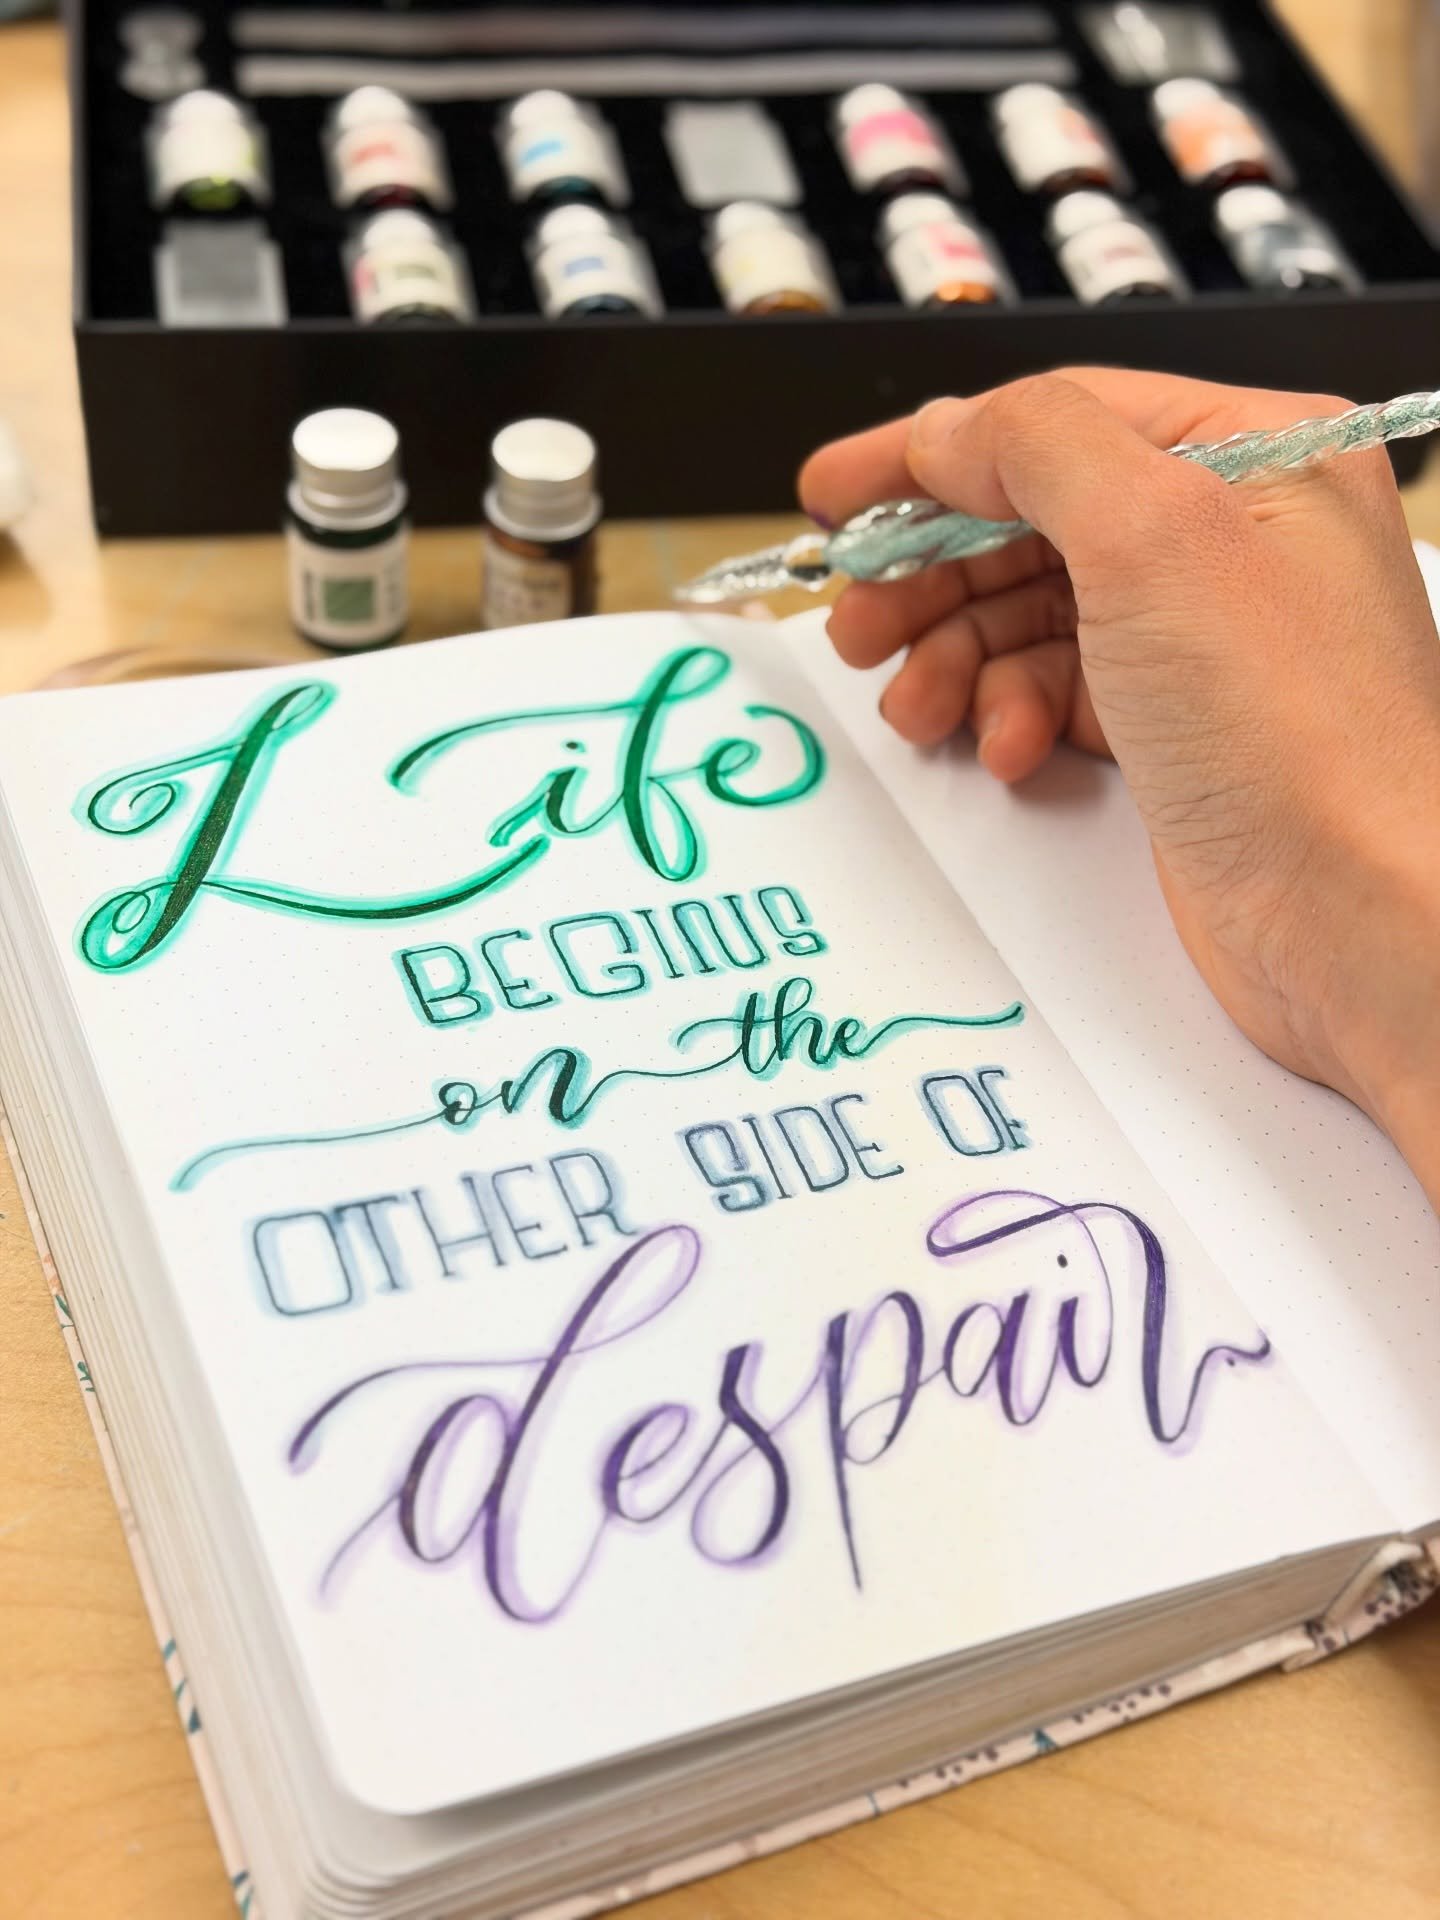 Life
BEGINS
on the
OTHER SIDE OF
despair